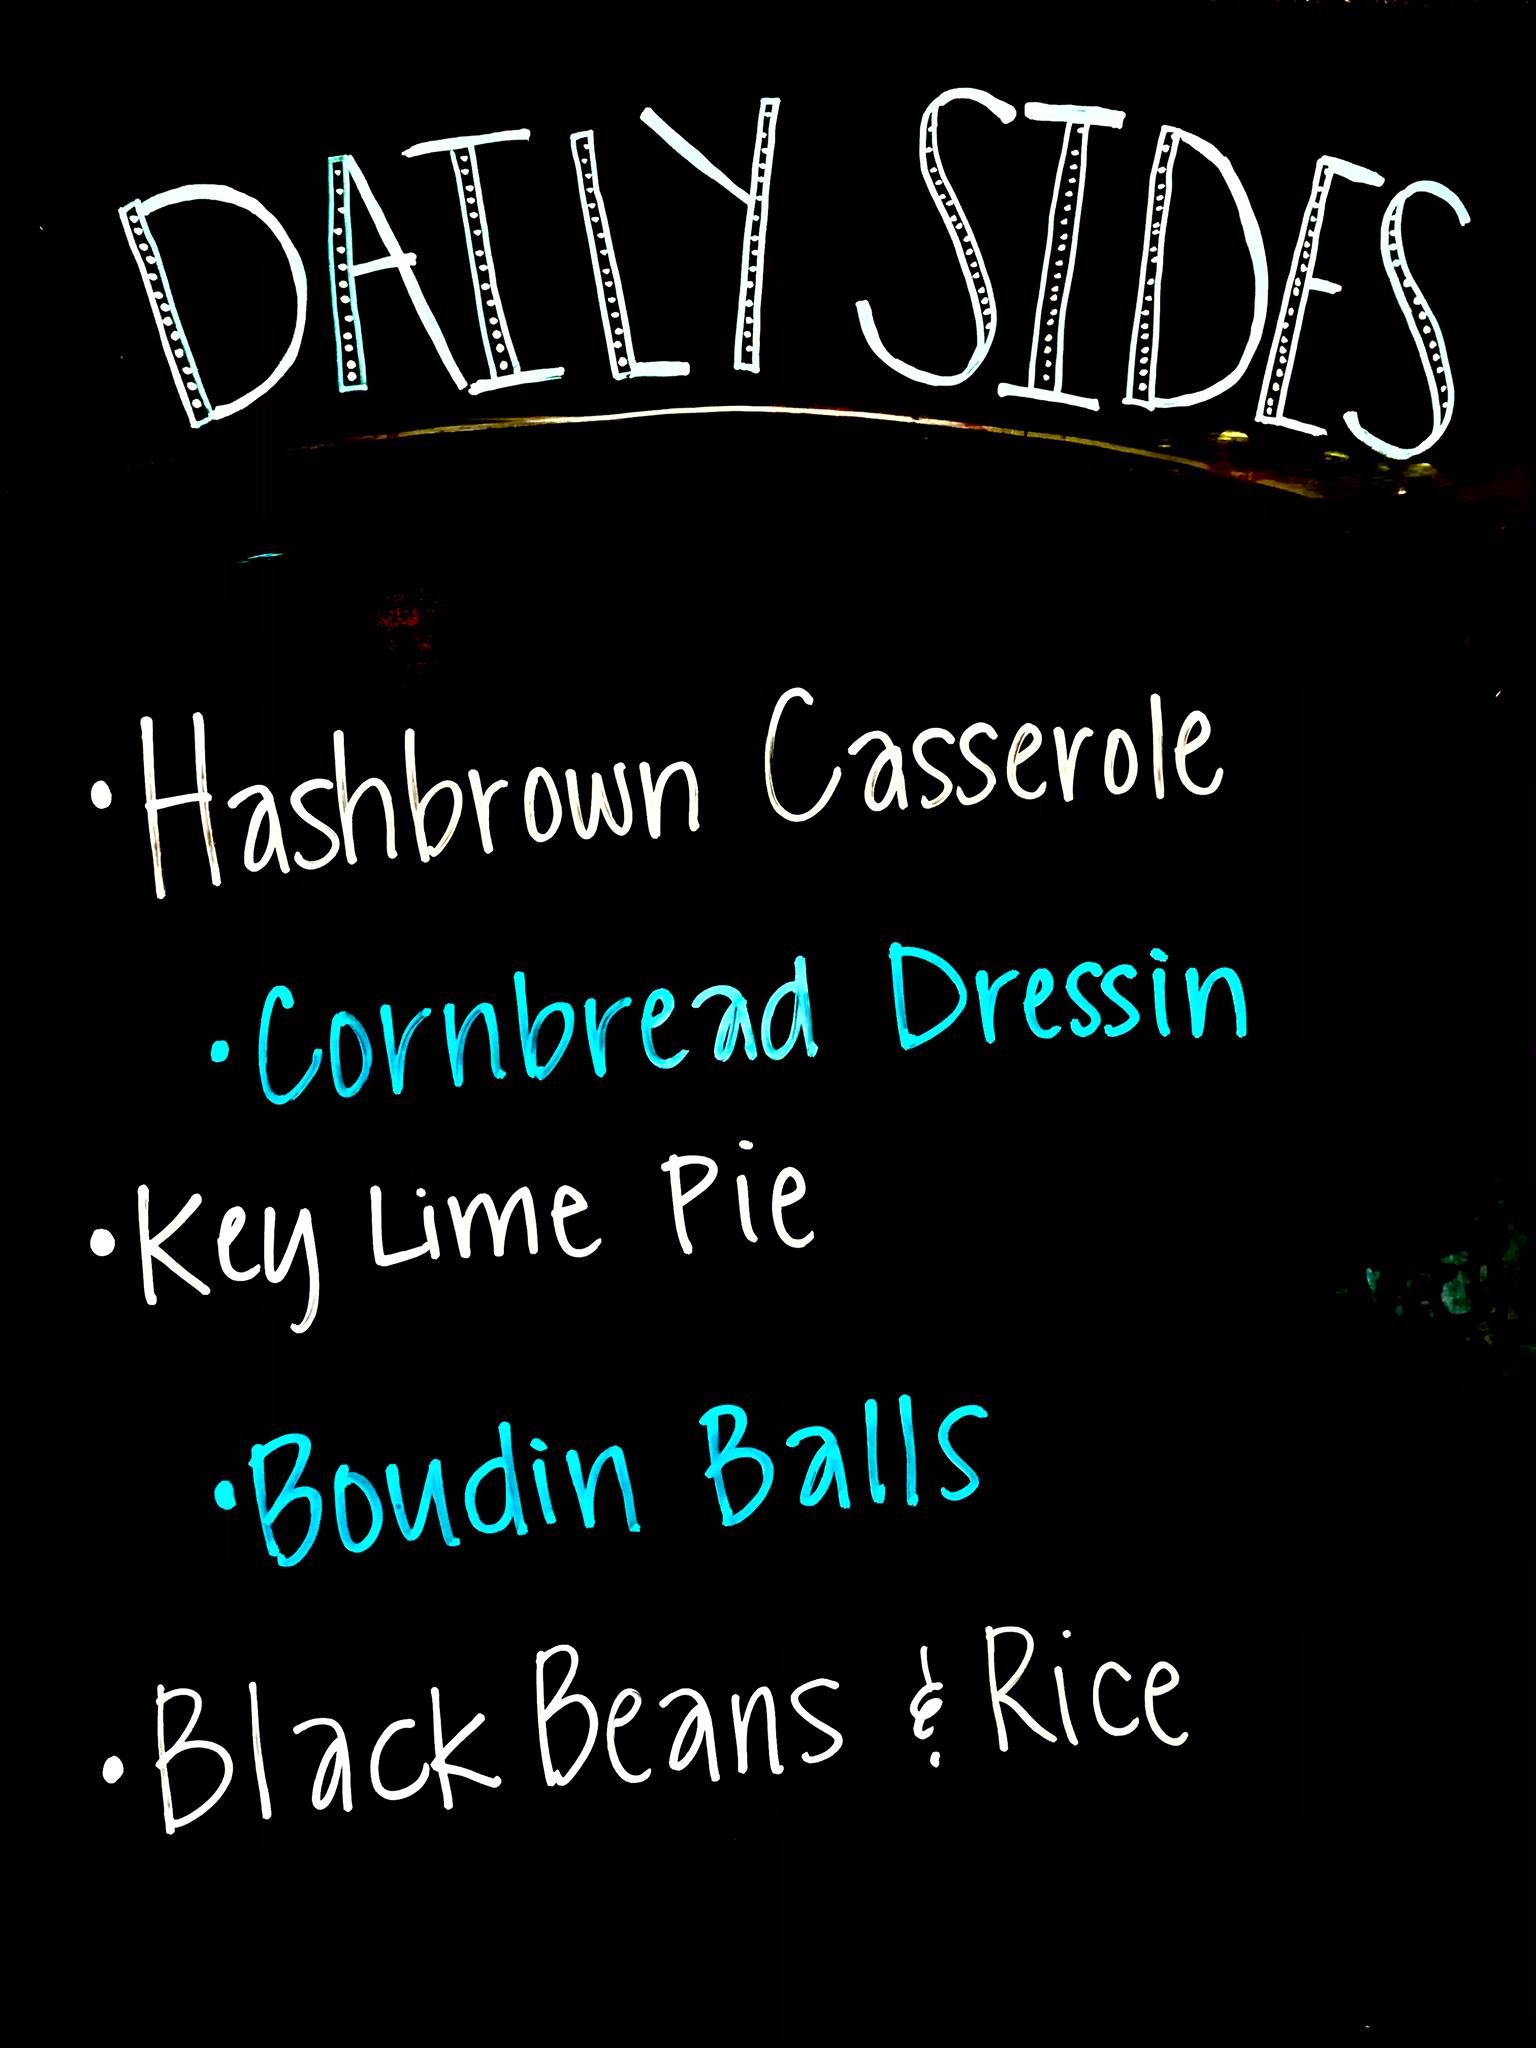 DAILY SIDES
• Hashbrown Casserole
• Cornbread Dressin
• Key Lime Pie
• Boudin Balls
• Black Beans & Rice